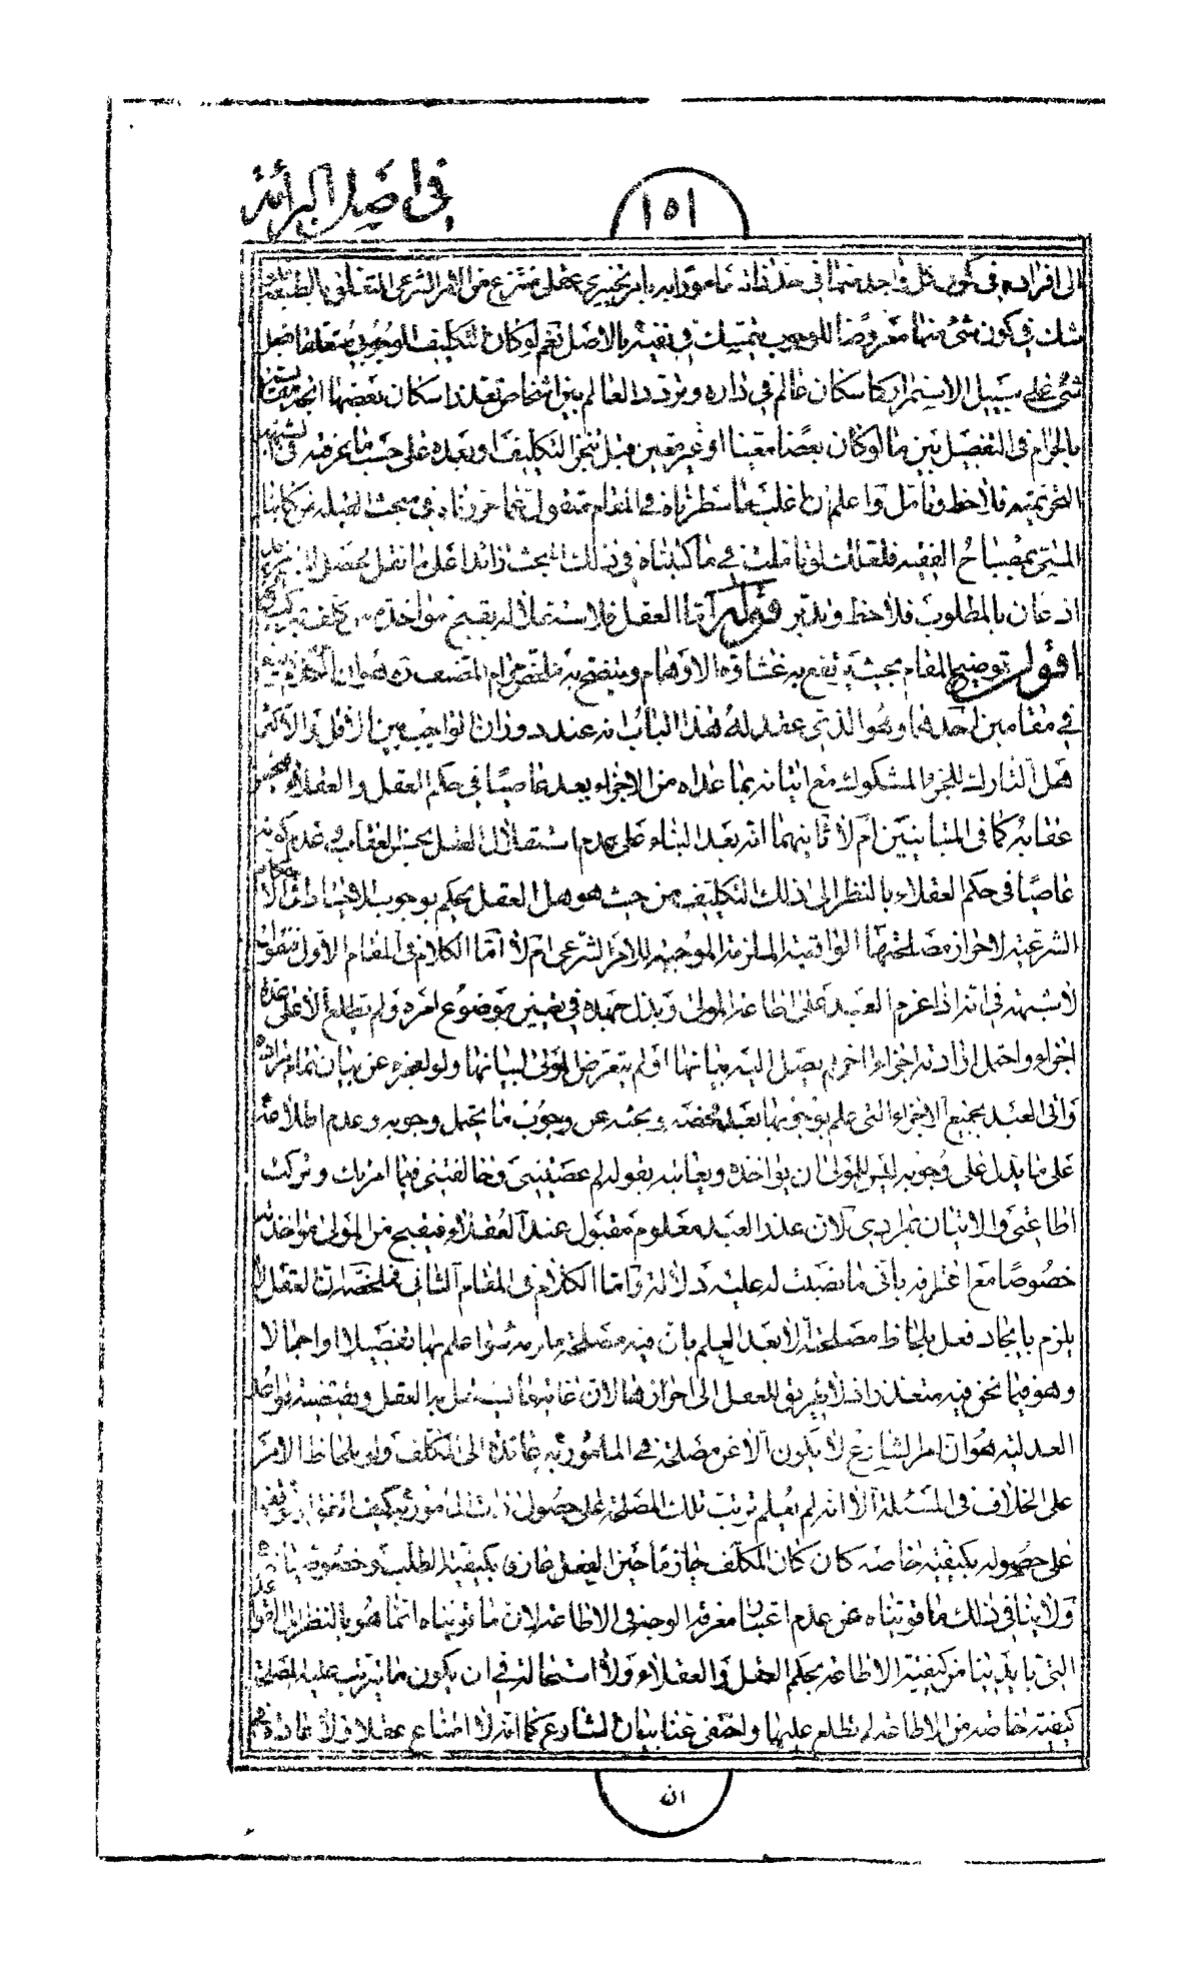 في اصل البرائة
١٥١
الى افراده في كون كل واحد منهما في حد ذاته مامورا به بامر تخييري عقلي منتزع من الامر الشرعي المتعلق بالطبيعة
شك في كون شئ منها معروضا للوجوب يتمسك في نفيه بالاصل نعم لو كان التكليف الوجوبي متعلقا بفعل
شئ على سبيل الاستمرار كاسكان عالم في داره وتردد العالم بين اشخاص تعذر اسكان بعضها اتجه
بالحرام في التفصيل بين ما لو كان بعضا معينا او غير معين قبل تنجز التكليف او بعده على حسب ما عرفته في الشبهة
التحريمية فلاحظ وتامل واعلم ان اغلب ما سطرناه في المقام منقول مما حررناه في مبحث القبلة من كتابنا
المسمى بمصباح الفقيه فلعلك لو تاملت في ما كتبناه في ذلك المبحث زائدا على ما نقل يحصل لك
اذعان بالمطلوب فلاحظ وتدبر قوله اما العقل فلاستقلاله بقبح مؤاخذة من كلف
اقول توضيح المقام بحيث يرتفع به غشاوة الاوهام ويتضح به ملخص مرام المصنف ره هو ان الكلام
في مقامين احدهما وهو الذي عقد له هذا الباب انه عند دوران الواجب بين الاقل والاكثر
هل التارك للجزء المشكوك مع اتيانه بما عداه من الاجزاء يعد عاصيا في حكم العقل والعقلاء
عقابه كما في المتباينين ام لا ثانيهما انه بعد البناء على عدم استقلال العقل بحسن العقاب وعدم كونه
عاصيا في حكم العقلاء بالنظر الى ذلك التكليف من حيث هو هل العقل يحكم بوجوب الاحتياط
الشرعية لاحراز مصلحتها الواقعية الملزمة الموجبة للامر الشرعي ام لا اما الكلام في المقام الاول فنقول
لا شبهة في انه اذا عزم العبد على اطاعة المولى وبذل جهده في تعيين موضوع امره ولم يطلع الا على عدة
اجزاء واحتمل ارادته اجزاء اخر لم يصل اليه بيانها او لم يتعرض المولى لبيانها ولو لعجزه عن بيان تمام مراده
واتى العبد بجميع الاجزاء التي علم بوجوبها بعد فحصه وبحثه عن وجوب ما يحتمل وجوبه وعدم اطلاعه
على ما يدل على وجوبه ليس للمولى ان يؤاخذه ويعاتبه بقوله لم عصيتني وخالفتني فيما امرتك وتركت
اطاعتي والاتيان بمرادي لان عذر العبد معلوم مقبول عند العقلاء فيقبح من المولى مؤاخذته
خصوصا مع اعترافه باني ما نصبت له عليه دلالة واما الكلام في المقام الثاني فملخصه ان العقل لا
يلزم بايجاد فعل بلحاظ مصلحته الا بعد العلم بان فيه مصلحة ملزمة سواء علم بها تفصيلا او اجمالا
وهو فيما نحن فيه متعذر اذ لا طريق للعقل الى احرازها لان غاية ما يستقل به العقل ويقتضيه قواعد
العدلية هو ان امر الشارع لا يكون الا عن مصلحة في المامور به عائدة الى المكلف ولو بلحاظ الامر
على الخلاف في المسئلة الا انه لم يعلم ترتب تلك المصلحة على حصول ذات المامور به كيف اتفق
على حصوله بكيفية خاصة كان كان المكلف جازما حين الفعل عارفا بكيفية الطلب وخصوصياته
ولا ينافي ذلك ما قويناه من عدم اعتبار معرفة الوجه في الاطاعة لان ما قويناه انما هو بالنظر الى القواعد
التي بايدينا من كيفية الاطاعة بحكم العقل والعقلاء ولا استحالة في ان يكون ما يترتب عليه المصلحة
كيفية خاصة من الاطاعة لم نطلع عليها واختفى عنا بيان الشارع كما انه لا امتناع عقلا ولا عادة
ان